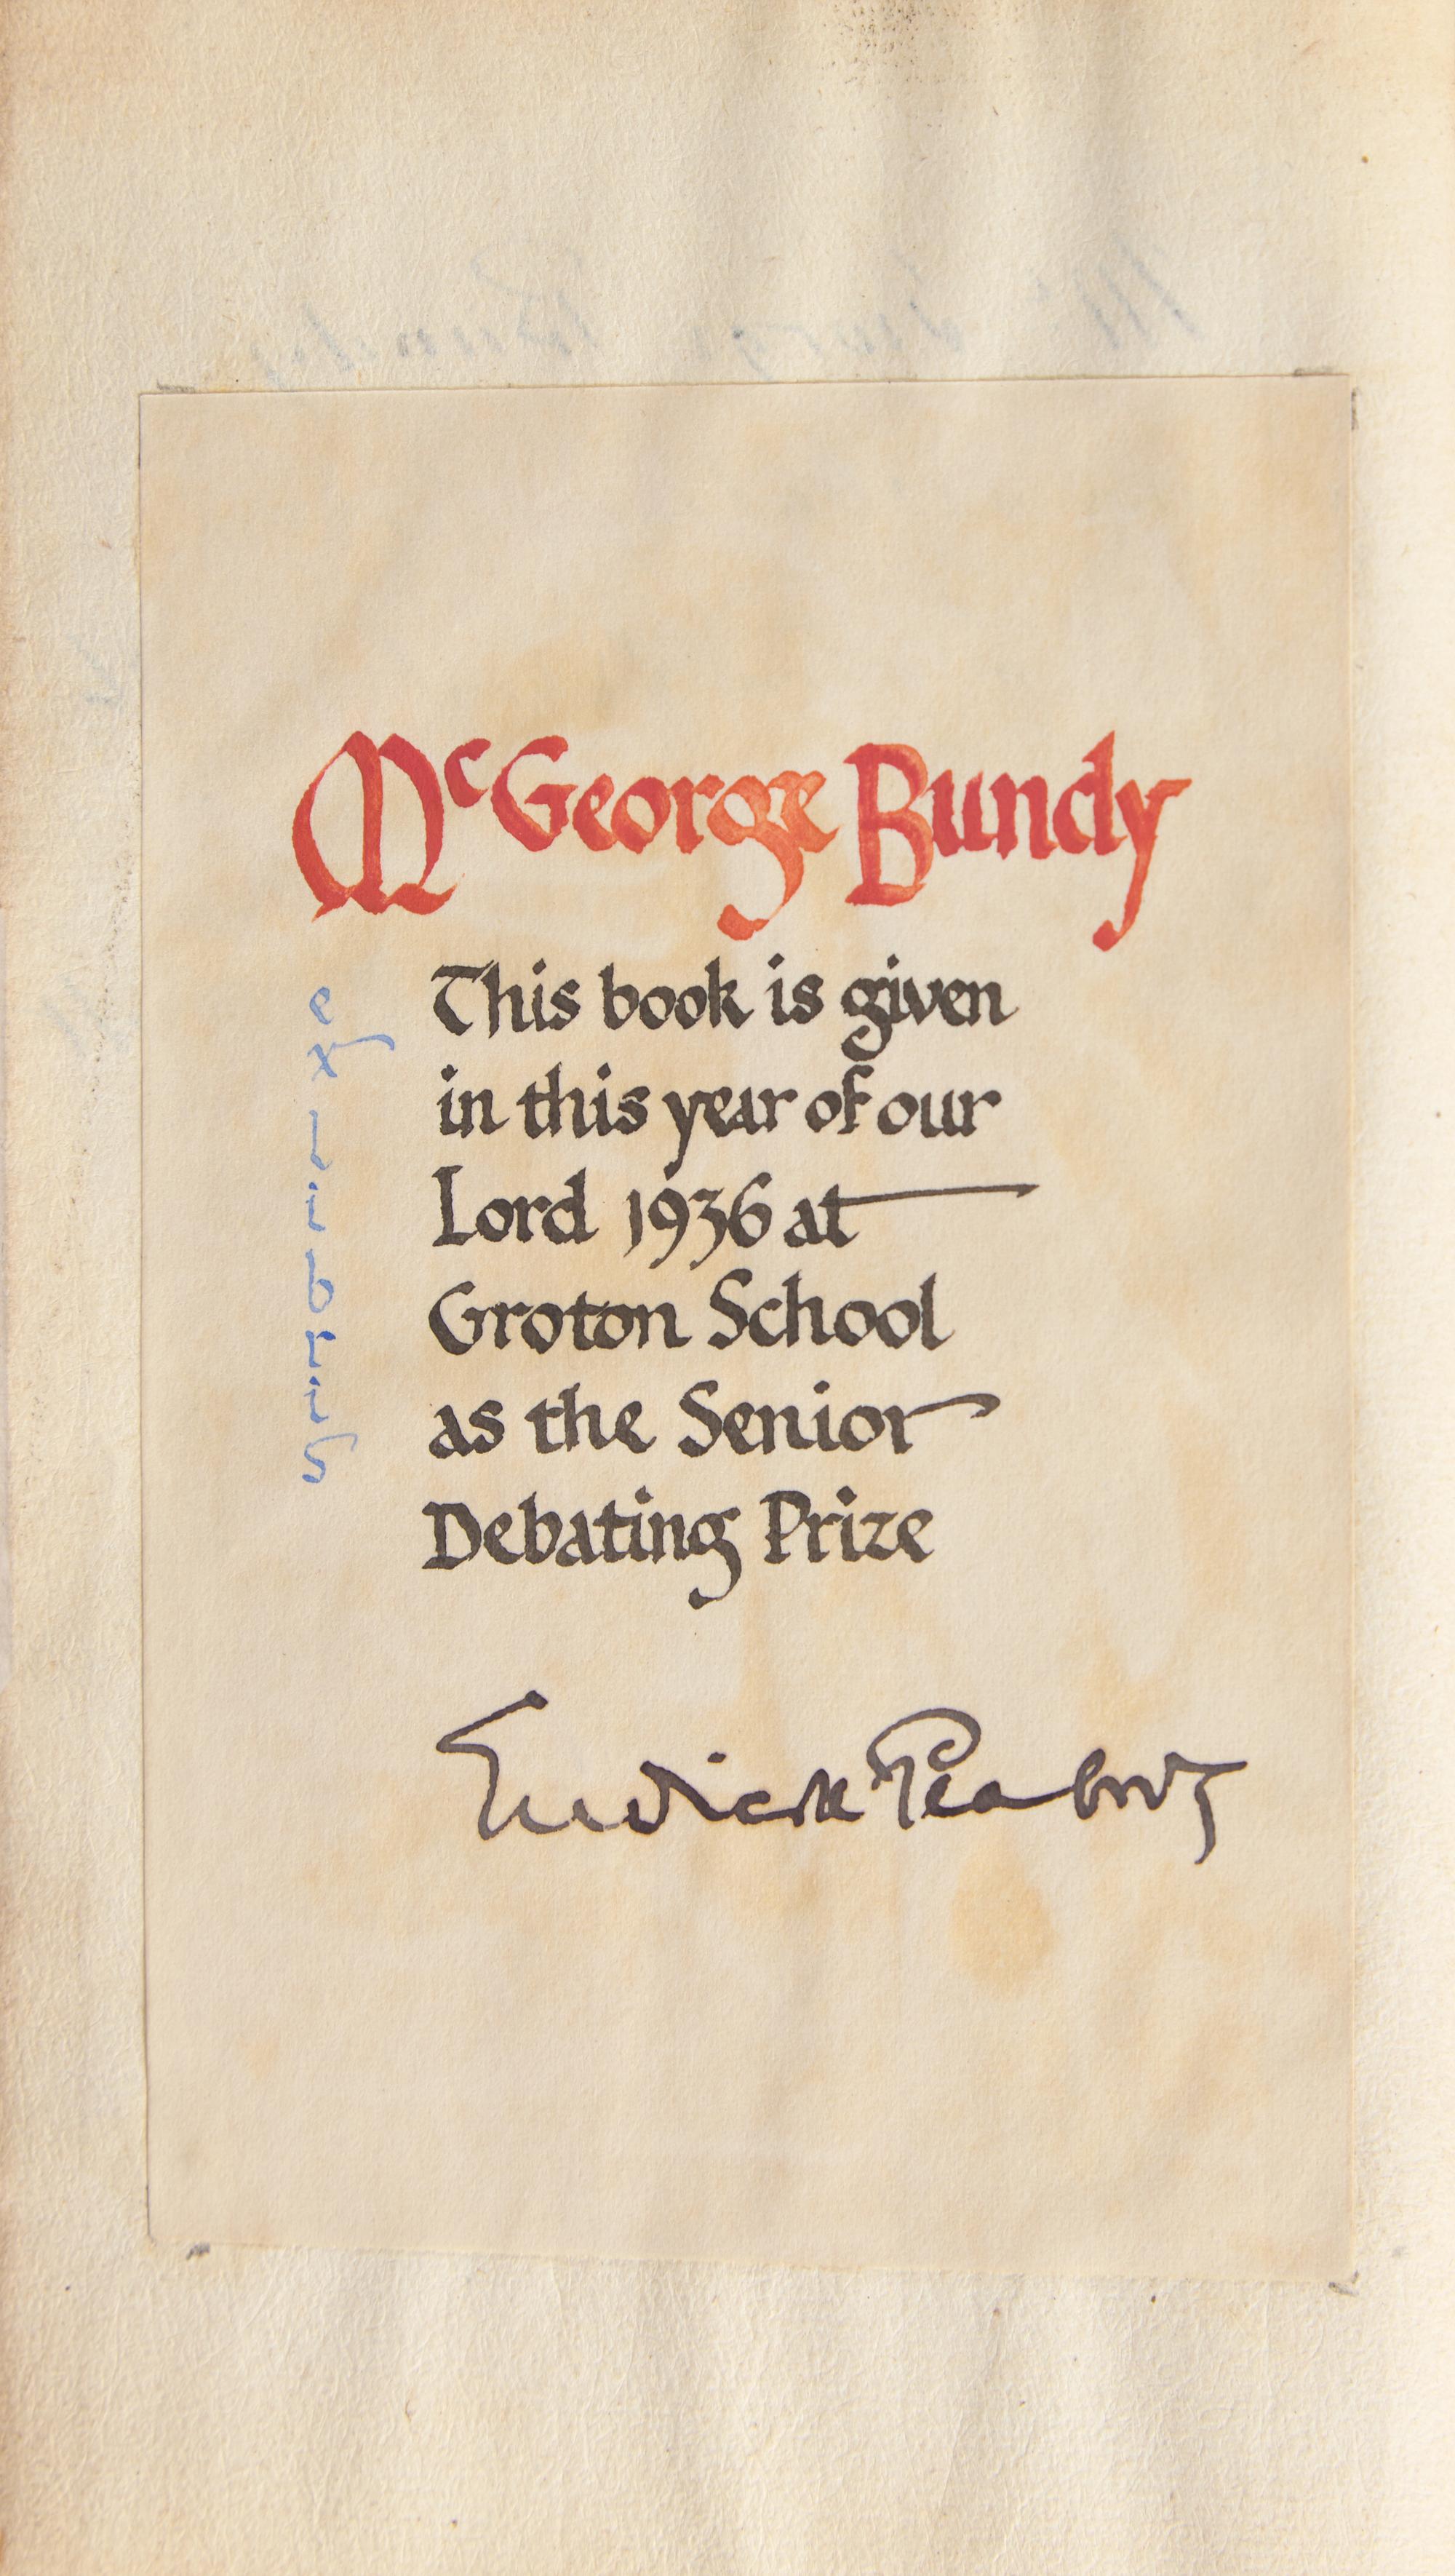 McGeorge Bundy
ex libris
This book is given
in this year of our
Lord 1936 at
Groton School
as the Senior
Debating Prize
Endicott Peabody